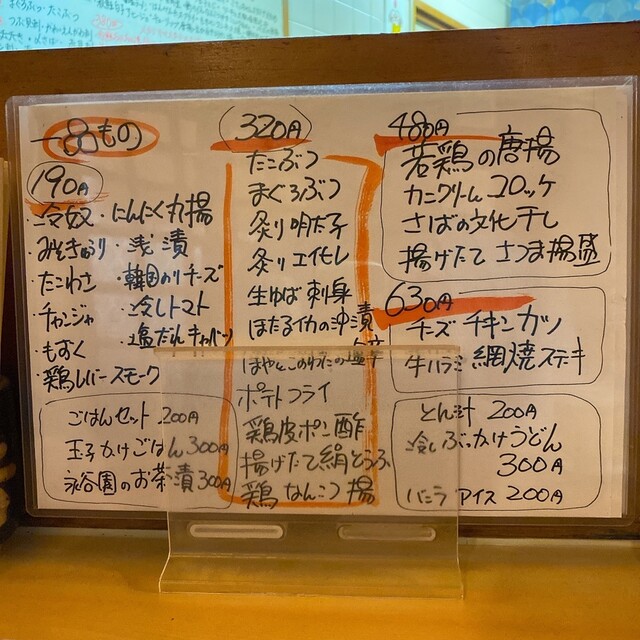 一品もの
190円
・冷奴 ・にんにく丸揚
みそきゅうり ・浅漬
たこわさ ・韓国のりチーズ
チャンジャ ・冷しトマト
・もずく ・塩だれキャベツ
・鶏レバースモーク
ごはんセット 200円
玉子かけごはん 300円
永谷園のお茶漬 300円
320円
たこぶつ
まぐろぶつ
炙り明太子
炙りエイヒレ
生ゆば刺身
ほたるイカの沖漬
ほやとこのわたの塩辛
ポテトフライ
鶏皮ポン酢
揚げたて絹とうふ
鶏なんこつ揚
480円
若鶏の唐揚
カニクリームコロッケ
さばの文化干し
揚げたて さつま揚盛
630円
チーズチキンカツ
牛ハラミ網焼ステーキ
とん汁 200円
冷しぶっかけうどん
300円
バニラアイス 200円